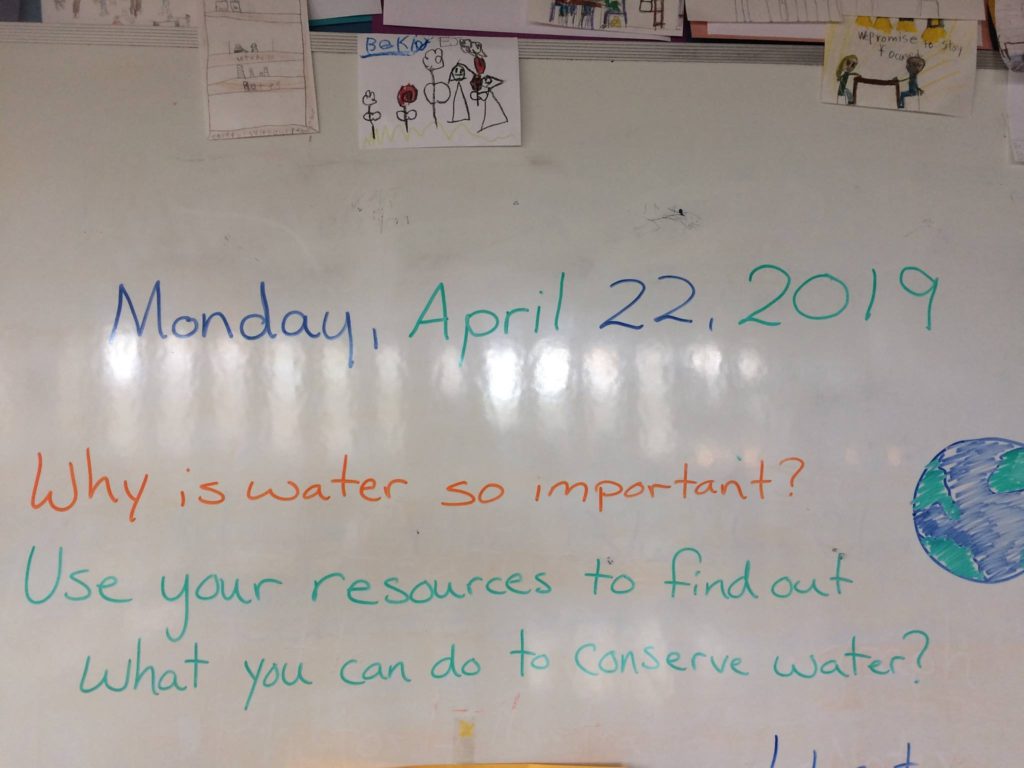 We promise to stay
Monday, April 22, 2019
Why is water so important?
Use your resources to find out
what you can do to conserve water?